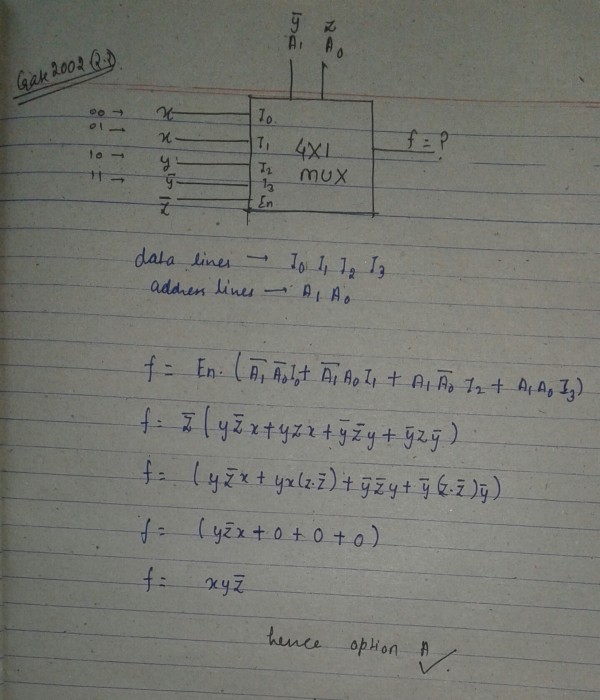 Gate 2002 (2.2)
ȳ z
A₁ A₀
00 → x I₀
01 → x I₁
10 → y I₂
11 → ȳ I₃
z̄ En
4X1
MUX
f = ?
data lines → I₀ I₁ I₂ I₃
address lines → A₁ A₀
f = En. (A̅₁ A̅₀I₀+ A̅₁ A₀ I₁ + A₁ A̅₀ I₂ + A₁ A₀ I₃)
f = z̄ (y z̄ x + y z x + ȳ z̄ y + ȳ z ȳ)
f = (y z̄ x + y x (z.z̄) + ȳ z̄ y + ȳ (z.z̄) ȳ)
f = (y z̄ x + 0 + 0 + 0)
f = x y z̄
hence option A ✓.